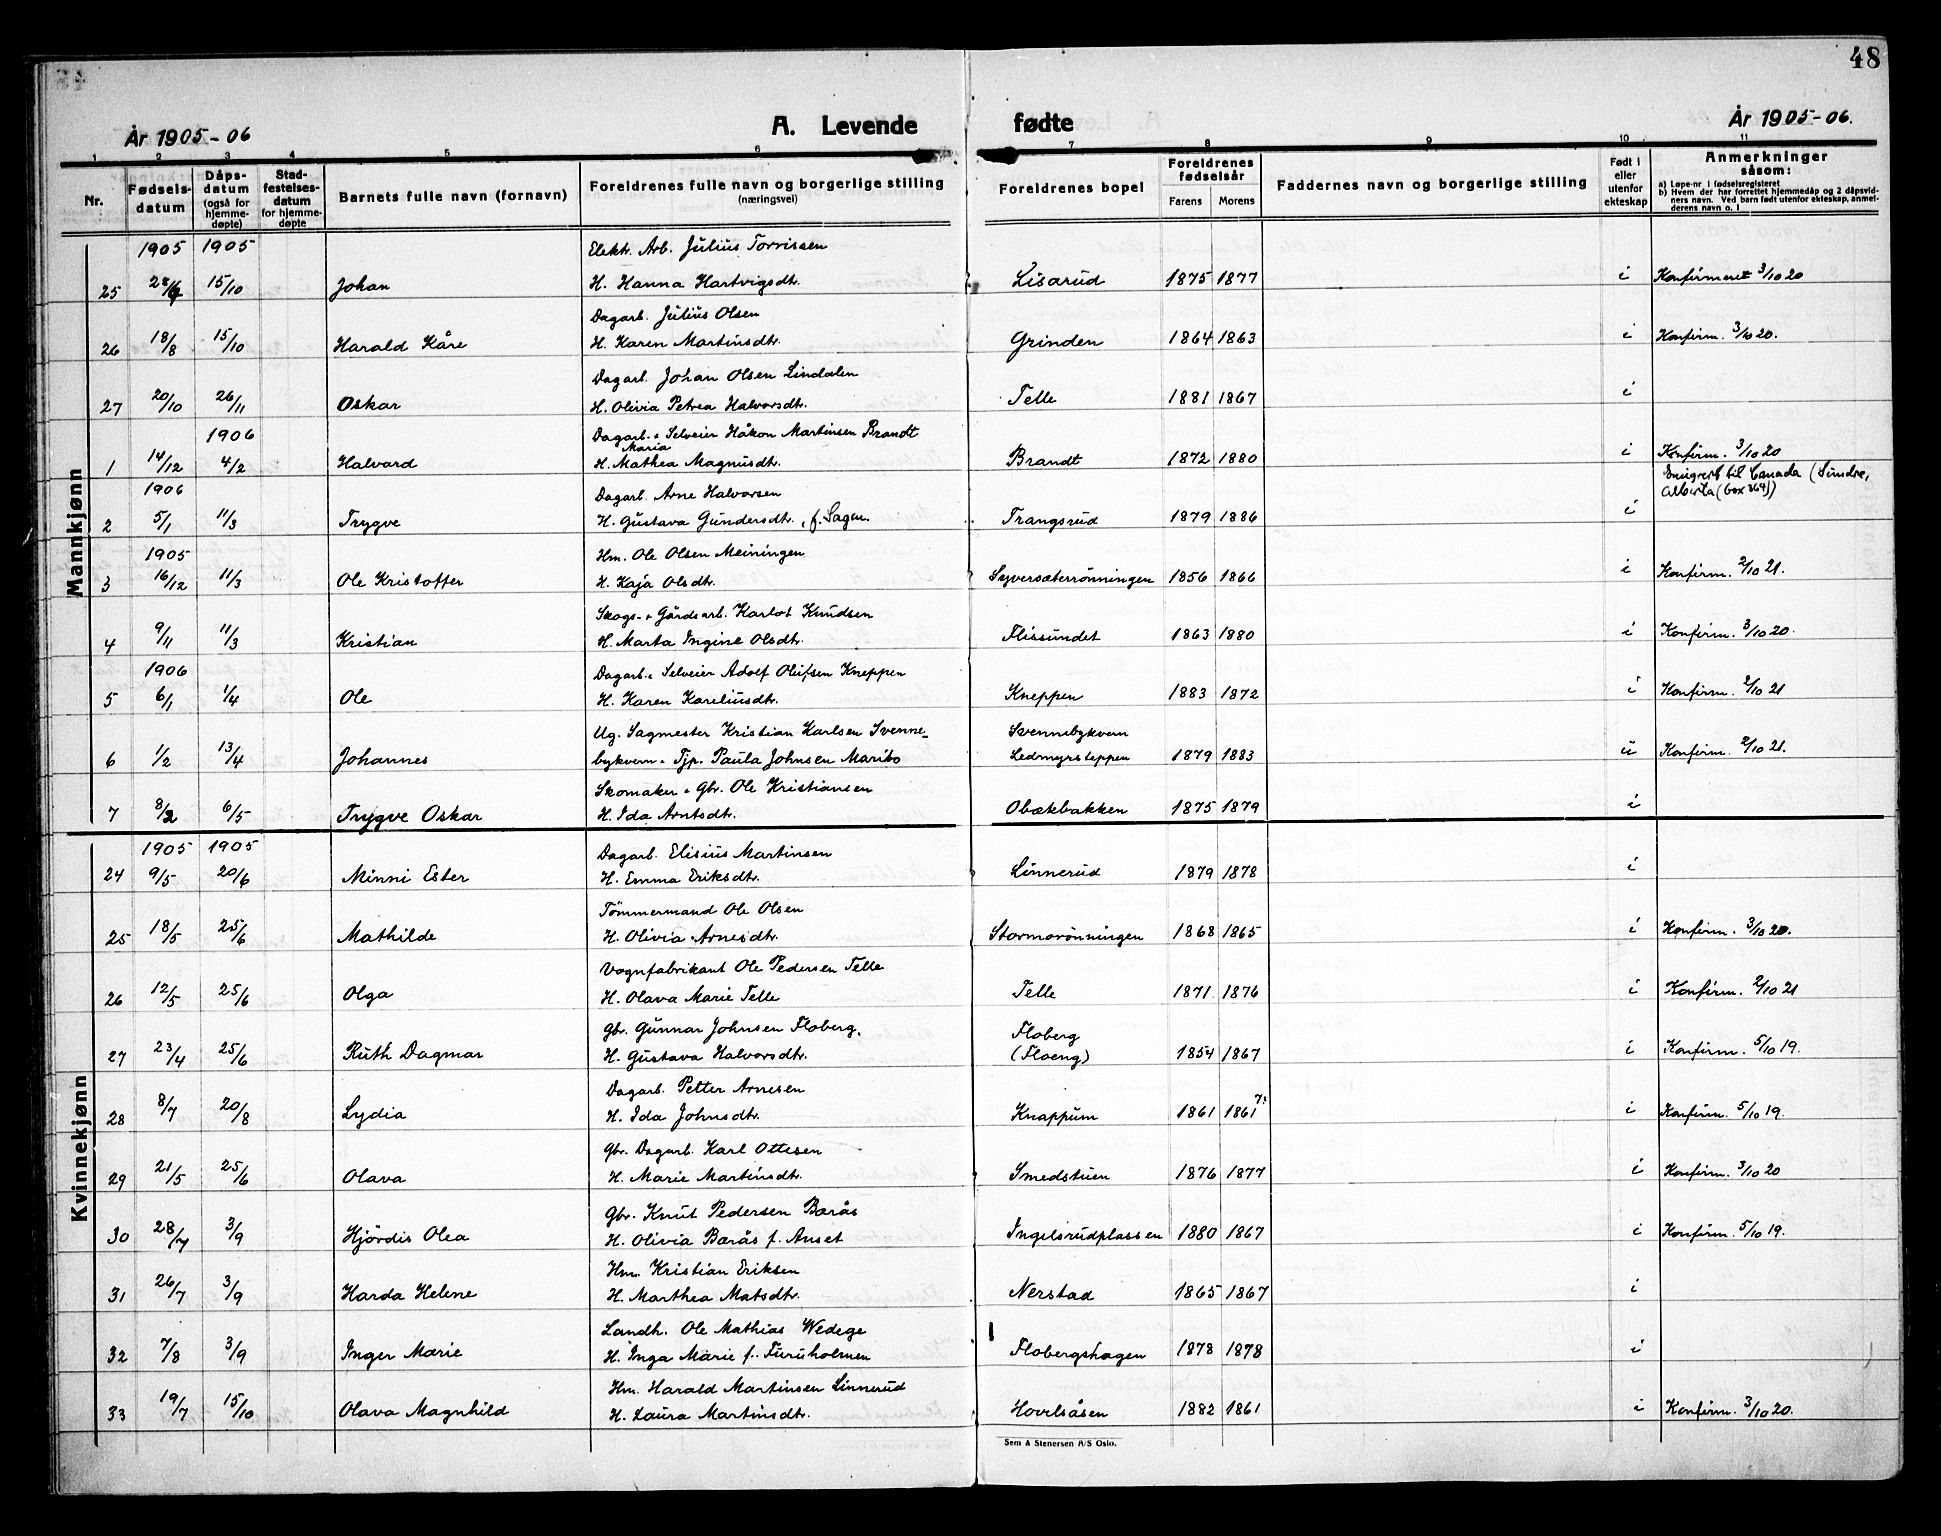 48
År 1905-06 A. Levende fødte År 1905-06.
1 2 3 4 5 6 7 8 9 10 11
Nr. Fødselsdatum Dåpsdatum (også for hjemmedøpte) Stadfestelsesdatum for hjemmedøpte Barnets fulle navn (fornavn) Foreldrenes fulle navn og borgerlige stilling (næringsvei) Foreldrenes bopel Foreldrenes fødselsår Farens Morens Faddernes navn og borgerlige stilling Født i eller utenfor ekteskap Anmerkninger såsom:
a) Løpe-nr. i fødselsregisteret
b) Hvem der har forrettet hjemmedåp og 2 dåpsvidners navn. Ved barn født utenfor ekteskap, anmelderens navn o. l
Mannkjønn
1905 1905 Elektr. Arb. Julius Torrissen
25 15/10 Johan H. Hanna Hartvigsdtr. Lisarud 1875 1877 i Konfirmeret 3/10 20
Dagarb. Julius Olsen
26 18/8 15/10 Harald Kåre H. Karen Martinsdtr. Grinden 1864 1863 i Konfirm. 3/10 20.
Dagarb. Johan Olsen Lindalen
27 20/10 26/11 Oskar H. Olivia Petrea Halvorsdtr. Telle 1881 1867 i
1906 Dagarb. & Selveier Håkon Martinsen Brandt
Maria
1 14/12 4/2 Halvard H. Mathea Magnusdtr. Brandt 1872 1880 i Konfirm. 3/10 20
Emigrert til Canada (Sundre,
1906 Dagarb. Arne Halvorsen Alberta (box 264))
2 5/1 11/3 Trygve H. Gustava Gundersdtr., f. Sagen. Trangsrud 1879 1886 i
1905 Hm. Ole Olsen Meiningen
3 16/12 11/3 Ole Kristoffer H. Kaja Olsdtr. Syversæterrönningen 1856 1866 i Konfirm. 2/10 21.
Skogs- & Gårdsarb. Karlot Knudsen
4 9/11 11/3 Kristian H. Marta Ingine Olsdtr. Flissundet 1863 1880 i Konfirm. 3/10 20.
1906 Dagarb. & Selveier Adolf Olufsen Kneppen
5 6/1 1/4 Ole H. Karen Kareliusdtr. Kneppen 1883 1872 i Konfirm. 2/10 21
Ug. Sagmester Kristian Karlsen Svenne- Svennebykvern
6 1/2 13/4 Johannes bykvern & Tjp. Paula Johnsen Maribo Ledmyrsteppen 1879 1883 u Konfirm. 2/10 21.
Skomaker & Gbr. Ole Kristiansen
7 8/2 6/5 Trygve Oskar H. Ida Arntsdtr. Obækbakken 1875 1879 i
Kvinnekjønn
1905 1905 Dagarb. Elisius Martinsen
24 9/5 20/6 Minni Ester H. Emma Eriksdtr. Linnerud 1879 1878 i
Tömmermand Ole Olsen
25 18/5 25/6 Mathilde H. Olivia Arnesdtr. Stormorönningen 1868 1865 i Konfirm. 3/10 20.
Vognfabrikant Ole Pedersen Telle
26 12/5 25/6 Olga H. Olava Marie Telle Telle 1871 1876 i Konfirm. 2/10 21
Gbr. Gunnar Johnsen Floberg. Floberg
27 23/4 25/6 Ruth Dagmar H. Gustava Halvorsdtr. (Floeng) 1854 1867 i Konfirm. 5/10 19.
Dagarb. Petter Arnesen
28 8/7 20/8 Lydia H. Ida Johnsdtr. Knappum 1861 1861 7? i Konfirm. 5/10 19.
Gbr. Dagarb. Karl Ottesen
29 21/5 25/6 Olava H. Marie Martinsdtr. Smedstuen 1876 1877 i Konfirm. 3/10 20
Gbr. Knut Pedersen Bærås
30 28/7 3/9 Hjördis Olea H. Olivia Bærås f. Anset Ingelsrudplassen 1880 1867 i Konfirm. 5/10 19.
Hm. Kristian Eriksen
31 26/7 3/9 Harda Helene H. Marthea Matsdtr. Nerstad 1865 1867 i
Landh. Ole Mathias Wedege
32 7/8 3/9 Inger Marie H. Inga Marie f. Furuholmen Flobergshagen 1878 1878 i
Hm. Harald Martinsen Linnerud
33 19/7 15/10 Olava Magnhild H. Laura Martinsdtr. Hovelsåsen 1882 1861 i Konfirm. 3/10 20.
Sem & Stenersen A/S Oslo.